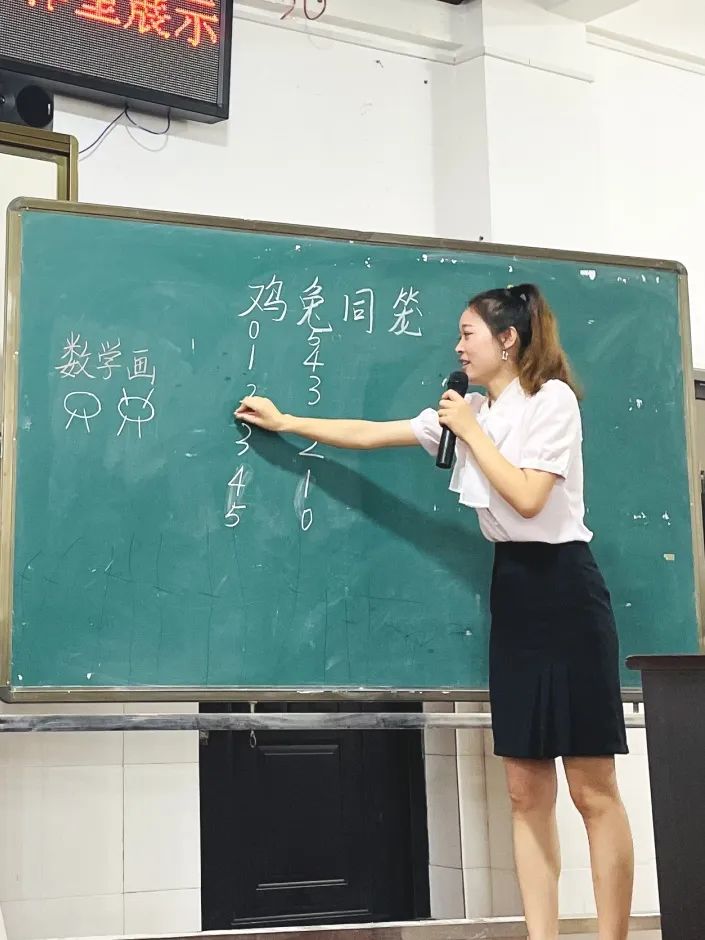 展示
鸡兔同笼
数学画
0 5
1 4
2 3
3 2
4 1
5 0